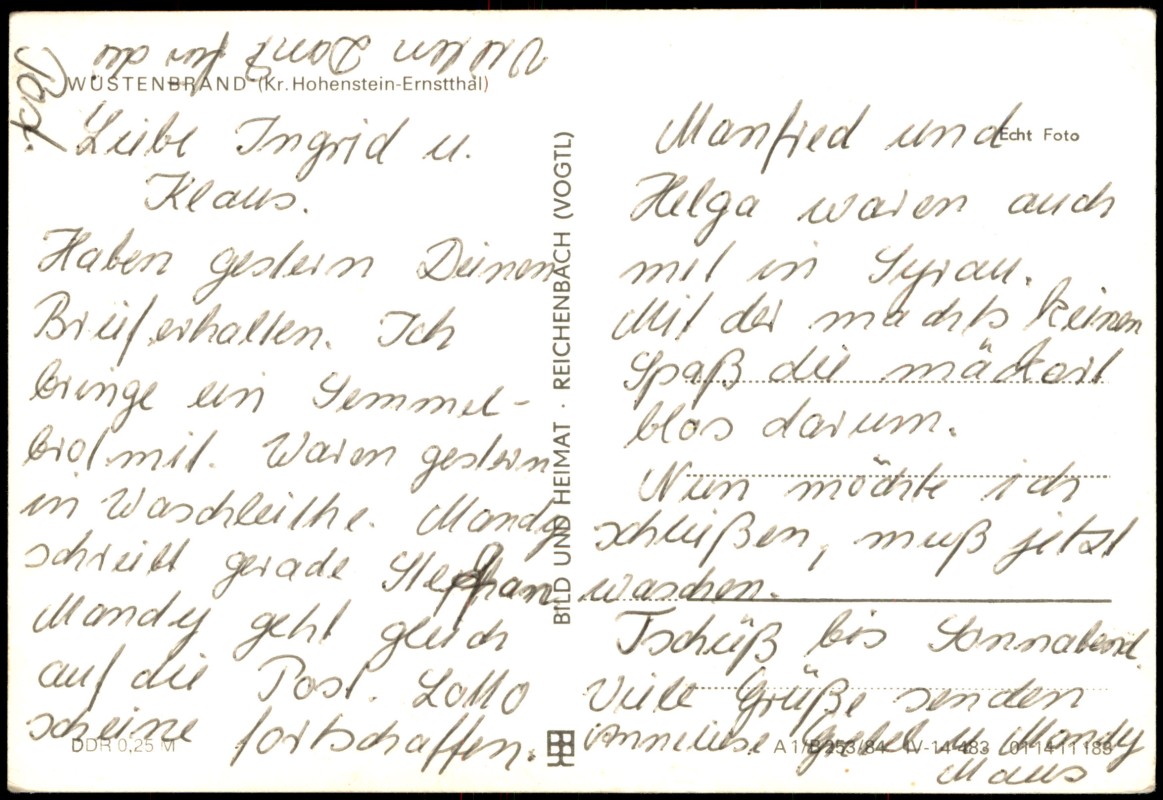 Vielen Dank für die
Post.
WÜSTENBRAND (Kr. Hohenstein-Ernstthal)
Echt Foto
Liebe Ingrid u.
Klaus.
Haben gestern Deinen
Brief erhalten. Ich
bringe ein Semmel-
brot mit. Waren gestern
in Waschleithe. Mandy
schreibt gerade Stephan
Mandy geht gleich
auf die Post. Lotto
scheine fortschaffen.
DDR 0,25 M
BILD UND HEIMAT · REICHENBACH (VOGTL)
Manfred und
Helga waren auch
mit in Syrau.
Mit der machts keinen
Spaß die mäckert
blos darum.
Nun möchte ich
schließen, muß jetzt
waschen.
Tschüß bis Sonnabend.
Viele Grüße senden
Anneliese u. Mandy
Maus
A 1/B 253/84 IV-14-483 01 14 11 183